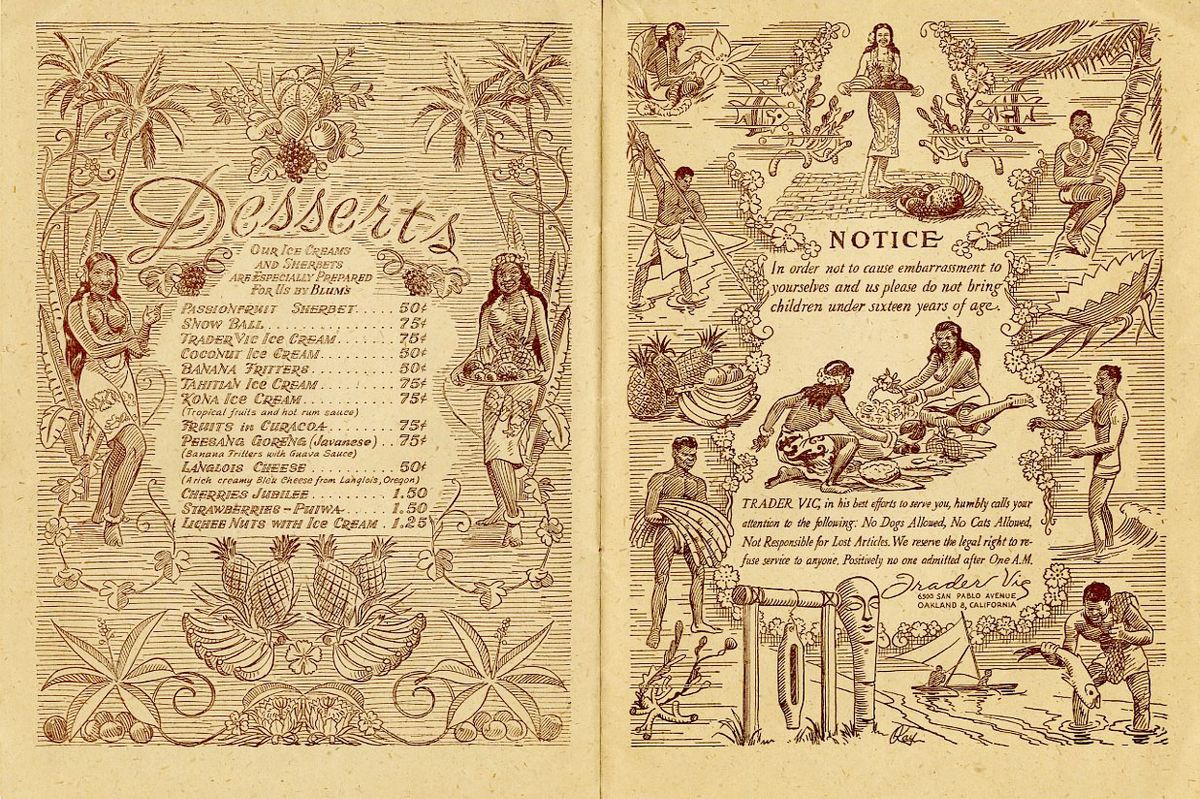 Desserts
OUR ICE CREAMS
AND SHERBETS
ARE ESPECIALLY PREPARED
FOR US BY BLUM'S
PASSIONFRUIT SHERBET..... 50¢
SNOW BALL............... 75¢
TRADER VIC ICE CREAM....... 75¢
COCONUT ICE CREAM......... 50¢
BANANA FRITTERS.......... 50¢
TAHITIAN ICE CREAM......... 75¢
KONA ICE CREAM........... 75¢
(Tropical fruits and hot rum sauce)
FRUITS in CURACOA......... 75¢
PEESANG GORENG (Javanese) .. 75¢
(Banana Fritters with Guava Sauce)
LANGLOIS CHEESE.......... 50¢
(A rich creamy Bleu Cheese from Langlois, Oregon)
CHERRIES JUBILEE.......... 1.50
STRAWBERRIES - PUIWA....... 1.50
LICHEE NUTS WITH ICE CREAM . 1.25
NOTICE
In order not to cause embarrassment to
yourselves and us please do not bring
children under sixteen years of age.
TRADER VIC, in his best efforts to serve you, humbly calls your
attention to the following: No Dogs Allowed, No Cats Allowed,
Not Responsible for Lost Articles. We reserve the legal right to re-
fuse service to anyone. Positively no one admitted after One A.M.
Trader Vic
6500 SAN PABLO AVENUE
OAKLAND 8, CALIFORNIA